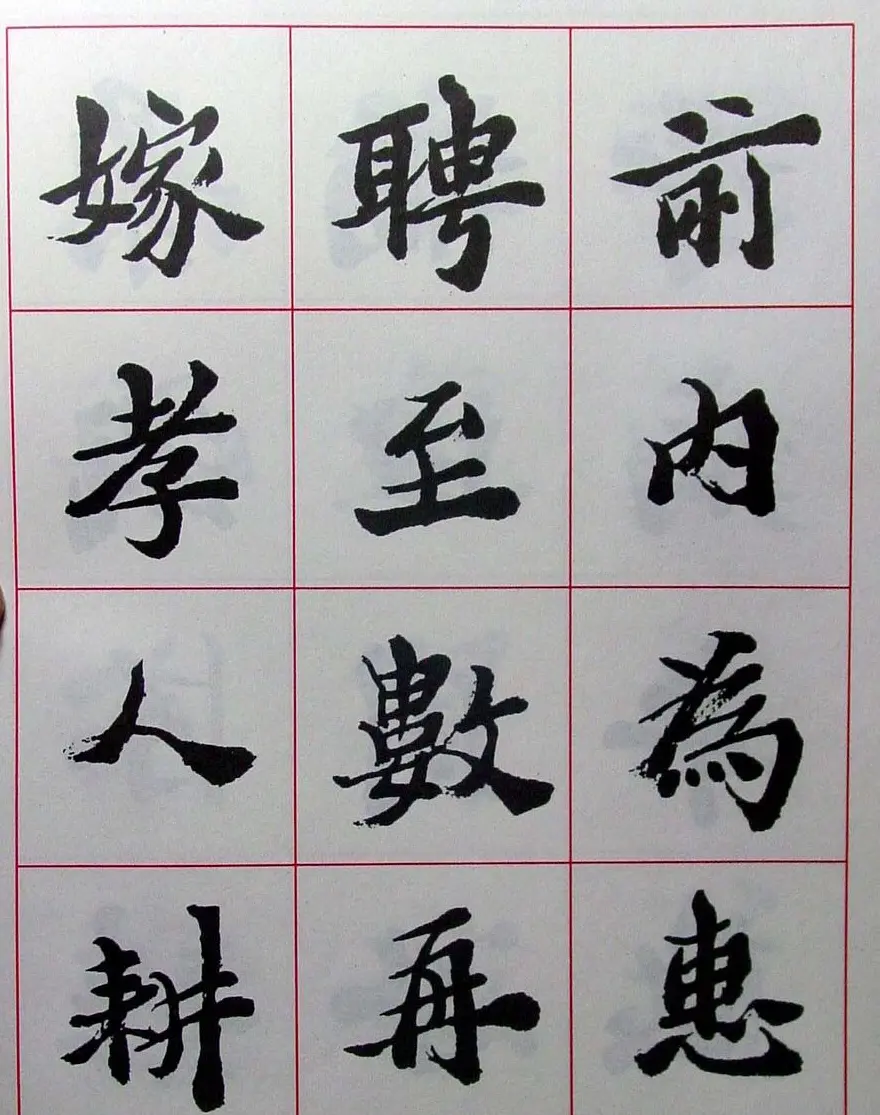 前内為惠
聘至數再
嫁孝人耕